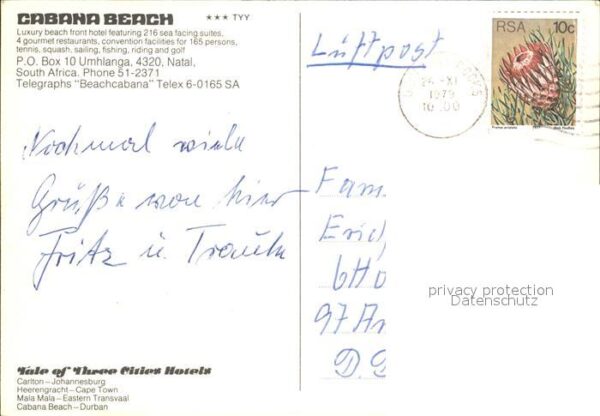 CABANA BEACH ★★★ TYY
Luxury beach front hotel featuring 216 sea facing suites,
4 gourmet restaurants, convention facilities for 165 persons,
tennis, squash, sailing, fishing, riding and golf
P.O. Box 10 Umhlanga, 4320, Natal,
South Africa. Phone 51-2371
Telegraphs "Beachcabana" Telex 6-0165 SA
Luftpost
RSA 10c
-XI
1979
10.00
Nochmal viele
Grüße von hier
Fritz u. Traute
Fam.
Erich
6
97
D.D
privacy protection
Datenschutz
Tale of Three Cities Hotels
Carlton–Johannesburg
Heerengracht–Cape Town
Mala Mala–Eastern Transvaal
Cabana Beach–Durban